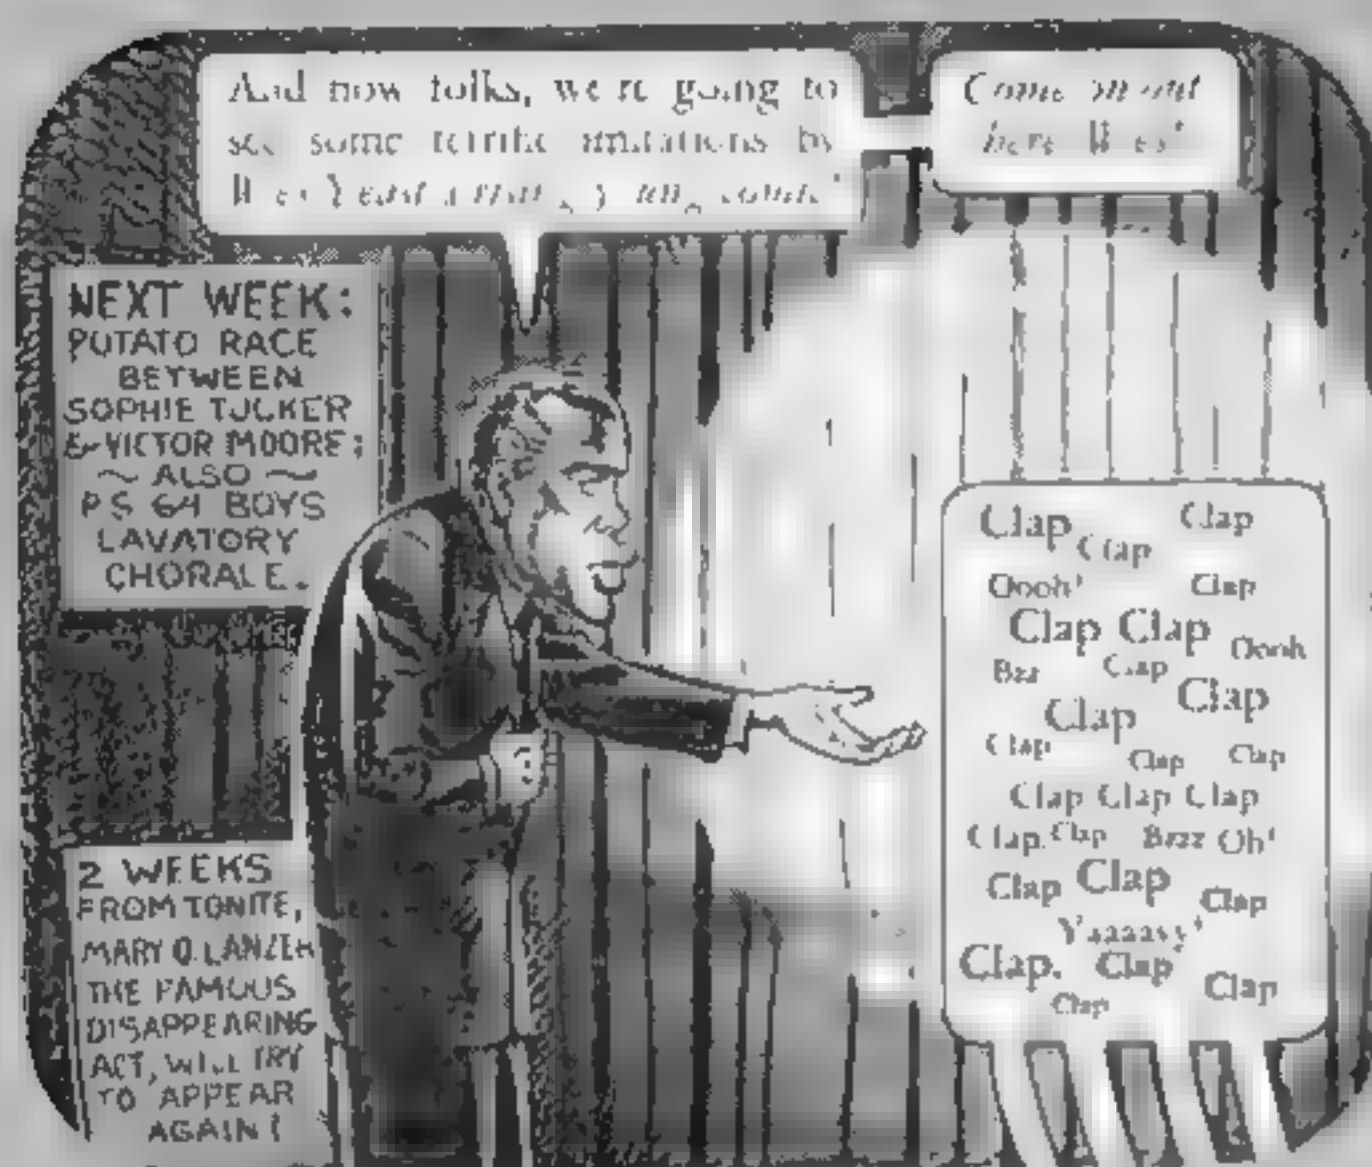 And now folks, we're going to
see some terrific imitations by
Come on out
here Wes!
NEXT WEEK:
POTATO RACE
BETWEEN
SOPHIE TUCKER
& VICTOR MOORE;
~ ALSO ~
P.S 64 BOYS
LAVATORY
CHORALE.
2 WEEKS
FROM TONITE,
MARY O. LANZER
THE FAMOUS
DISAPPEARING
ACT, WILL TRY
TO APPEAR
AGAIN!
Clap Clap
Clap
Oooh! Clap
Clap Clap Oooh
Bzz Clap
Clap Clap
Clap Clap Clap
Clap Clap Clap
Clap. Clap Bzzz Oh!
Clap Clap Clap
Yaaaayy!
Clap. Clap Clap
Clap